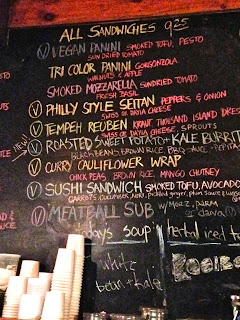 ALL SANDWICHES 9.25
Ⓥ VEGAN PANINI SMOKED TOFU, PESTO
SUN DRIED TOMATO
TRI COLOR PANINI GORGONZOLA
WALNUTS & APPLE
SMOKED MOZZARELLA SUNDRIED TOMATO
FRESH BASIL
Ⓥ PHILLY STYLE SEITAN PEPPERS & ONION
SWISS OR DAIYA CHEESE
Ⓥ TEMPEH REUBEN KRAUT THOUSAND ISLAND DRES
SWISS OR DAIYA CHEESE, SPROUTS
NEW! Ⓥ ROASTED SWEET POTATO + KALE BURRIT
BLACK BEANS BROWN RICE BBQ PEPITA
Ⓥ CURRY CAULIFLOWER WRAP
CHICK PEAS, BROWN RICE, MANGO CHUTNEY
Ⓥ SUSHI SANDWICH SMOKED TOFU, AVOCADO
CARROTS, CUCUMBER, NORI, pickled ginger, plum sauce
Ⓥ MEATBALL SUB w/ Mozz, parm
or daiya Ⓥ
days soup herbal iced t
white
bean + kale